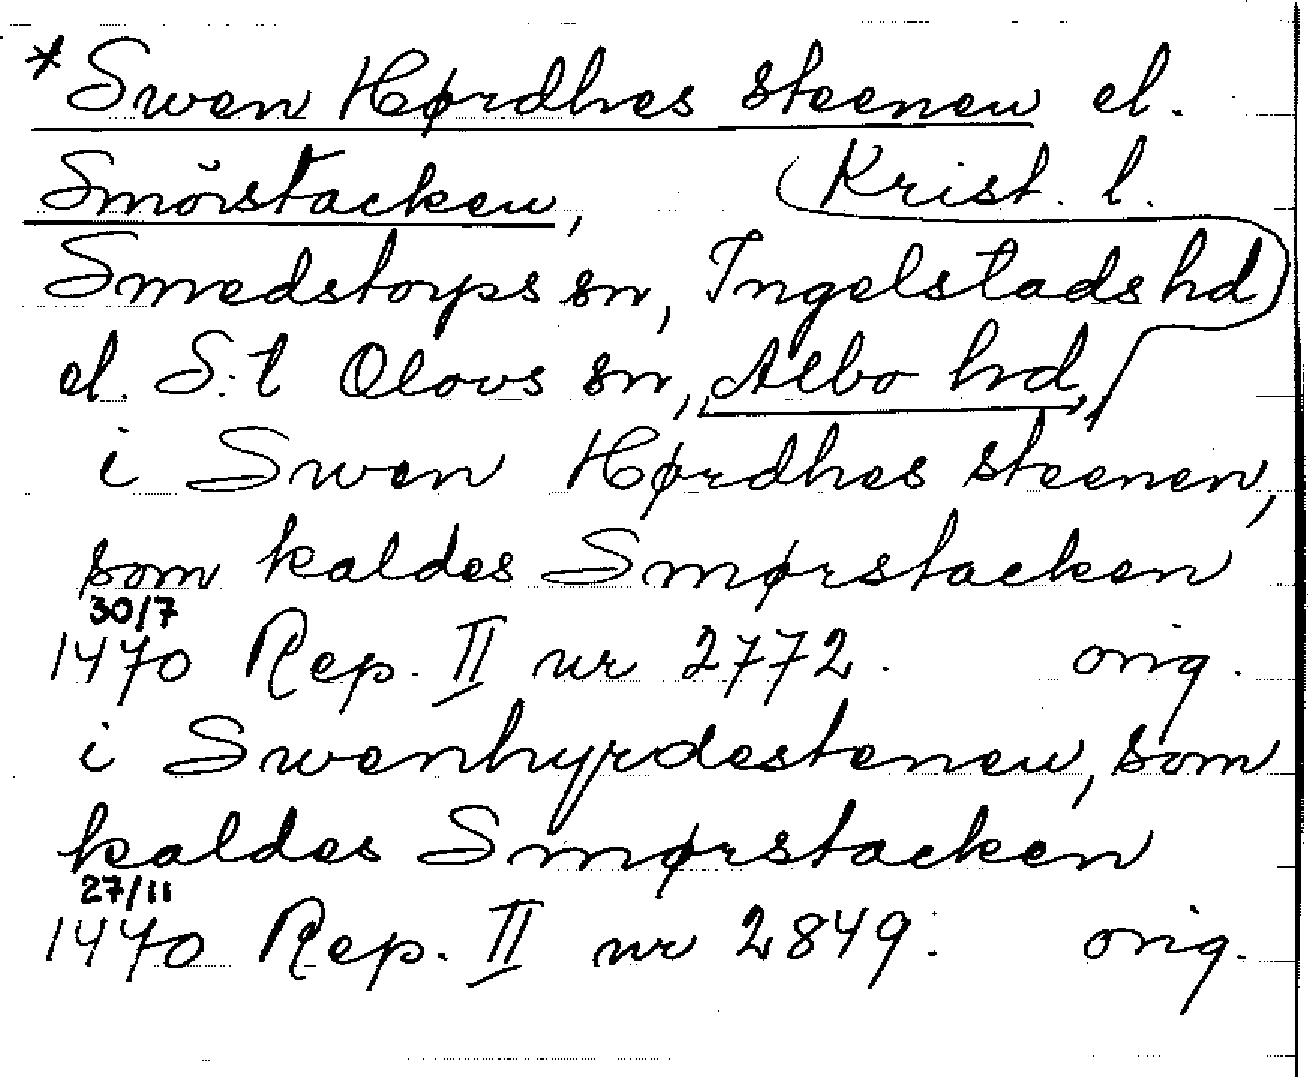 *Swen Hørdhes steenen el.
Smörstacken, Krist. l.
Smedstorps sn, Ingelstads hd
el. S:t Olovs sn, Albo hd,
i Swen Hørdhes steenen,
som kaldes Smørstacken
30/7
1470 Rep. II nr 2772. orig.
i Swenhyrdestenen, som
kaldes Smørstacken
27/11
1470 Rep. II nr 2849. orig.